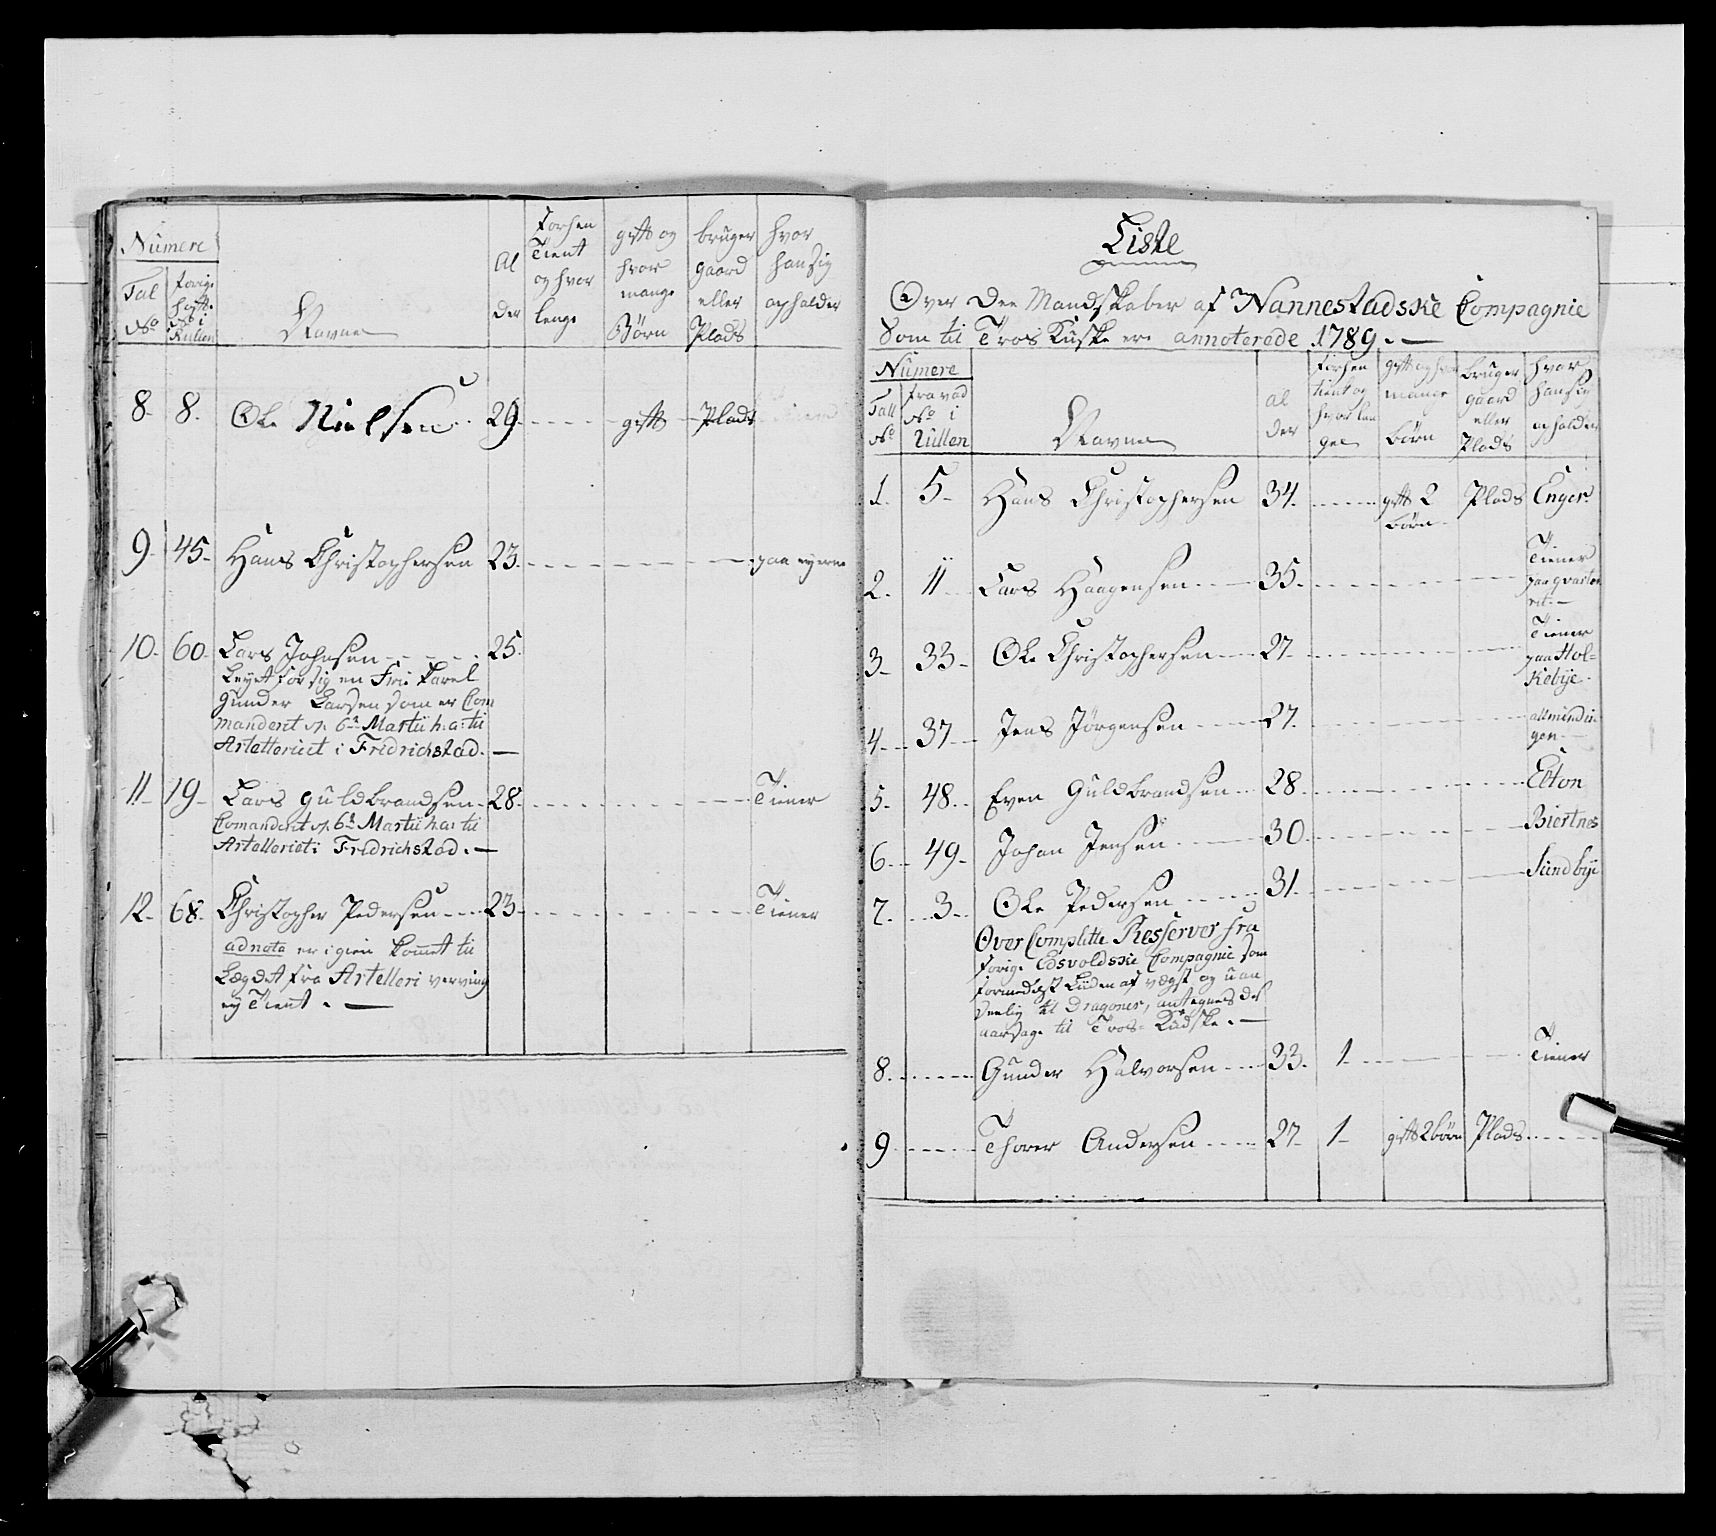 Numere
Tal No
forige No i Rullen
Navne
Al der
Forhen Tient og hvor lenge
gift og hvor mange Börn
bruger gaard eller Plads
hvor han sig opholder
8. 8. Ole Nielsen 29 gift Plads
9. 45. Hans Christophersen 23. paa eyerne
10. 60. Lars Johnsen 25.
Leyet for sig en Frie karel
Gunder Larsen som er Com
manderet 6te Martii h: a: til
Artelleriet i Fredrichstad. —
11. 19. Lars Guldbrandsen 28. Tiener
Comanderet 6te Martii h: a: til
Artelleriet i Fredrichstad. —
12. 68. Christopher Pedersen 23. Tiener
adnota er igien kommet til
Lægdet fra Artelleri verving
ey Tient. —
Liste
Over Dee Mandskaber af Nannestadske Compagnie
Som til Tros Kuske ere annoterede 1789. —
Numere
Tall No
No i Rullen
Navne
al der
forhen tient og hvor længe
gift og hvor mange börn
bruger gaard eller Plads
hvor han sig opholder
1. 5. Hans Christophersen 34. gift 2 Plads Enger
börn
2. 11. Lars Haagensen 35. Tiener
paa
3. 33. Ole Christophersen 27. Tiener
paa Hol=
kebÿe.
4. 37. Jens Jörgensen 27. allmindin
gen.
5. 48. Even Guldbrandsen 28. Elton
6. 49. Johan Jensen 30. Biertnes
7. 3. Ole Pedersen 31. Sundbÿe
Over Complette Resserver fra
forige Edsvoldske Compagnie som
formedelst Liiden af vægst og uan
seelig til Dragoner, antegnes des
aarsage til Tros= Kudske. —
8. Gunder Halvorsen 33. 1. Tiener
9. Thorer Andersen 27. 1. gift 2 börn Plads